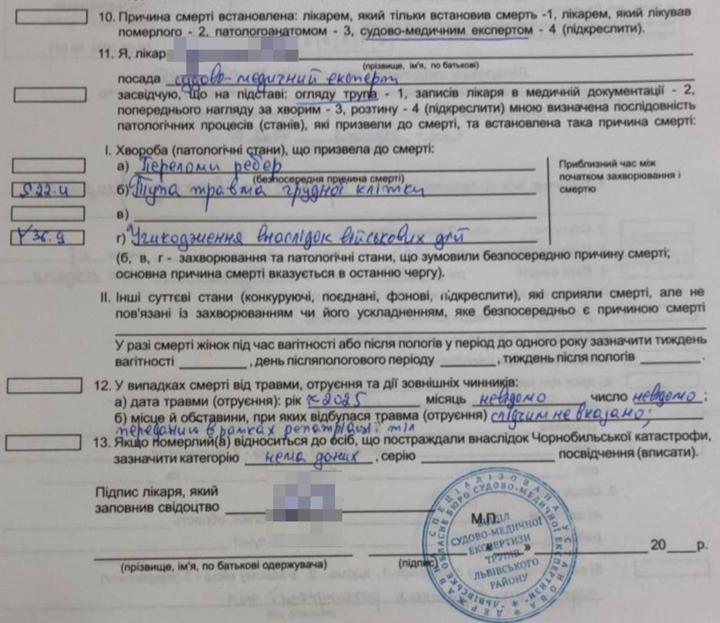 10. Причина смерті встановлена: лікарем, який тільки встановив смерть -1, лікарем, який лікував
померлого - 2, патологоанатомом - 3, судово-медичним експертом - 4 (підкреслити).
11. Я, лікар
(прізвище, ім'я, по батькові)
посада судово-медичний експерт
засвідчую, що на підставі: огляду трупа - 1, записів лікаря в медичній документації - 2,
попереднього нагляду за хворим - 3, розтину - 4 (підкреслити) мною визначена послідовність
патологічних процесів (станів), які призвели до смерті, та встановлена така причина смерті:
I. Хвороба (патологічні стани), що призвела до смерті:
а) Переломи ребер
(безпосередня причина смерті)
Приблизний час між
початком захворювання і
смертю
S 22.4 б) Тупа травма грудної клітки
в)
Y 36.9 г) Ушкодження внаслідок військових дій
(б, в, г - захворювання та патологічні стани, що зумовили безпосередню причину смерті;
основна причина смерті вказується в останню чергу).
II. Інші суттєві стани (конкуруючі, поєднані, фонові, підкреслити), які сприяли смерті, але не
пов'язані із захворюванням чи його ускладненням, яке безпосередньо є причиною смерті
У разі смерті жінок під час вагітності або після пологів у період до одного року зазначити тиждень
вагітності , день післяпологового періоду , тиждень після пологів .
12. У випадках смерті від травми, отруєння та дії зовнішніх чинників:
а) дата травми (отруєння): рік 2025 місяць невідомо число невідомо ;
б) місце й обставини, при яких відбулася травма (отруєння) слідчим не вказано;
переданий в рамках репатріації тіл
13. Якщо померлий(а) відноситься до осіб, що постраждали внаслідок Чорнобильської катастрофи,
зазначити категорію нема даних , серію посвідчення (вписати).
Підпис лікаря, який
заповнив свідоцтво
М.П.
" 20 р.
(прізвище, ім'я, по батькові одержувача)
(підпис)
СПЕЦІАЛІЗОВАНА УСТАНОВА
ОБЛАСНЕ БЮРО СУДОВО-МЕДИЧНОЇ ЕКСПЕРТИЗИ
ВІДДІЛ
СУДОВО-МЕДИЧНОЇ
ЕКСПЕРТИЗИ
ТРУПІВ
ЛЬВІВСЬКОГО
РАЙОНУ